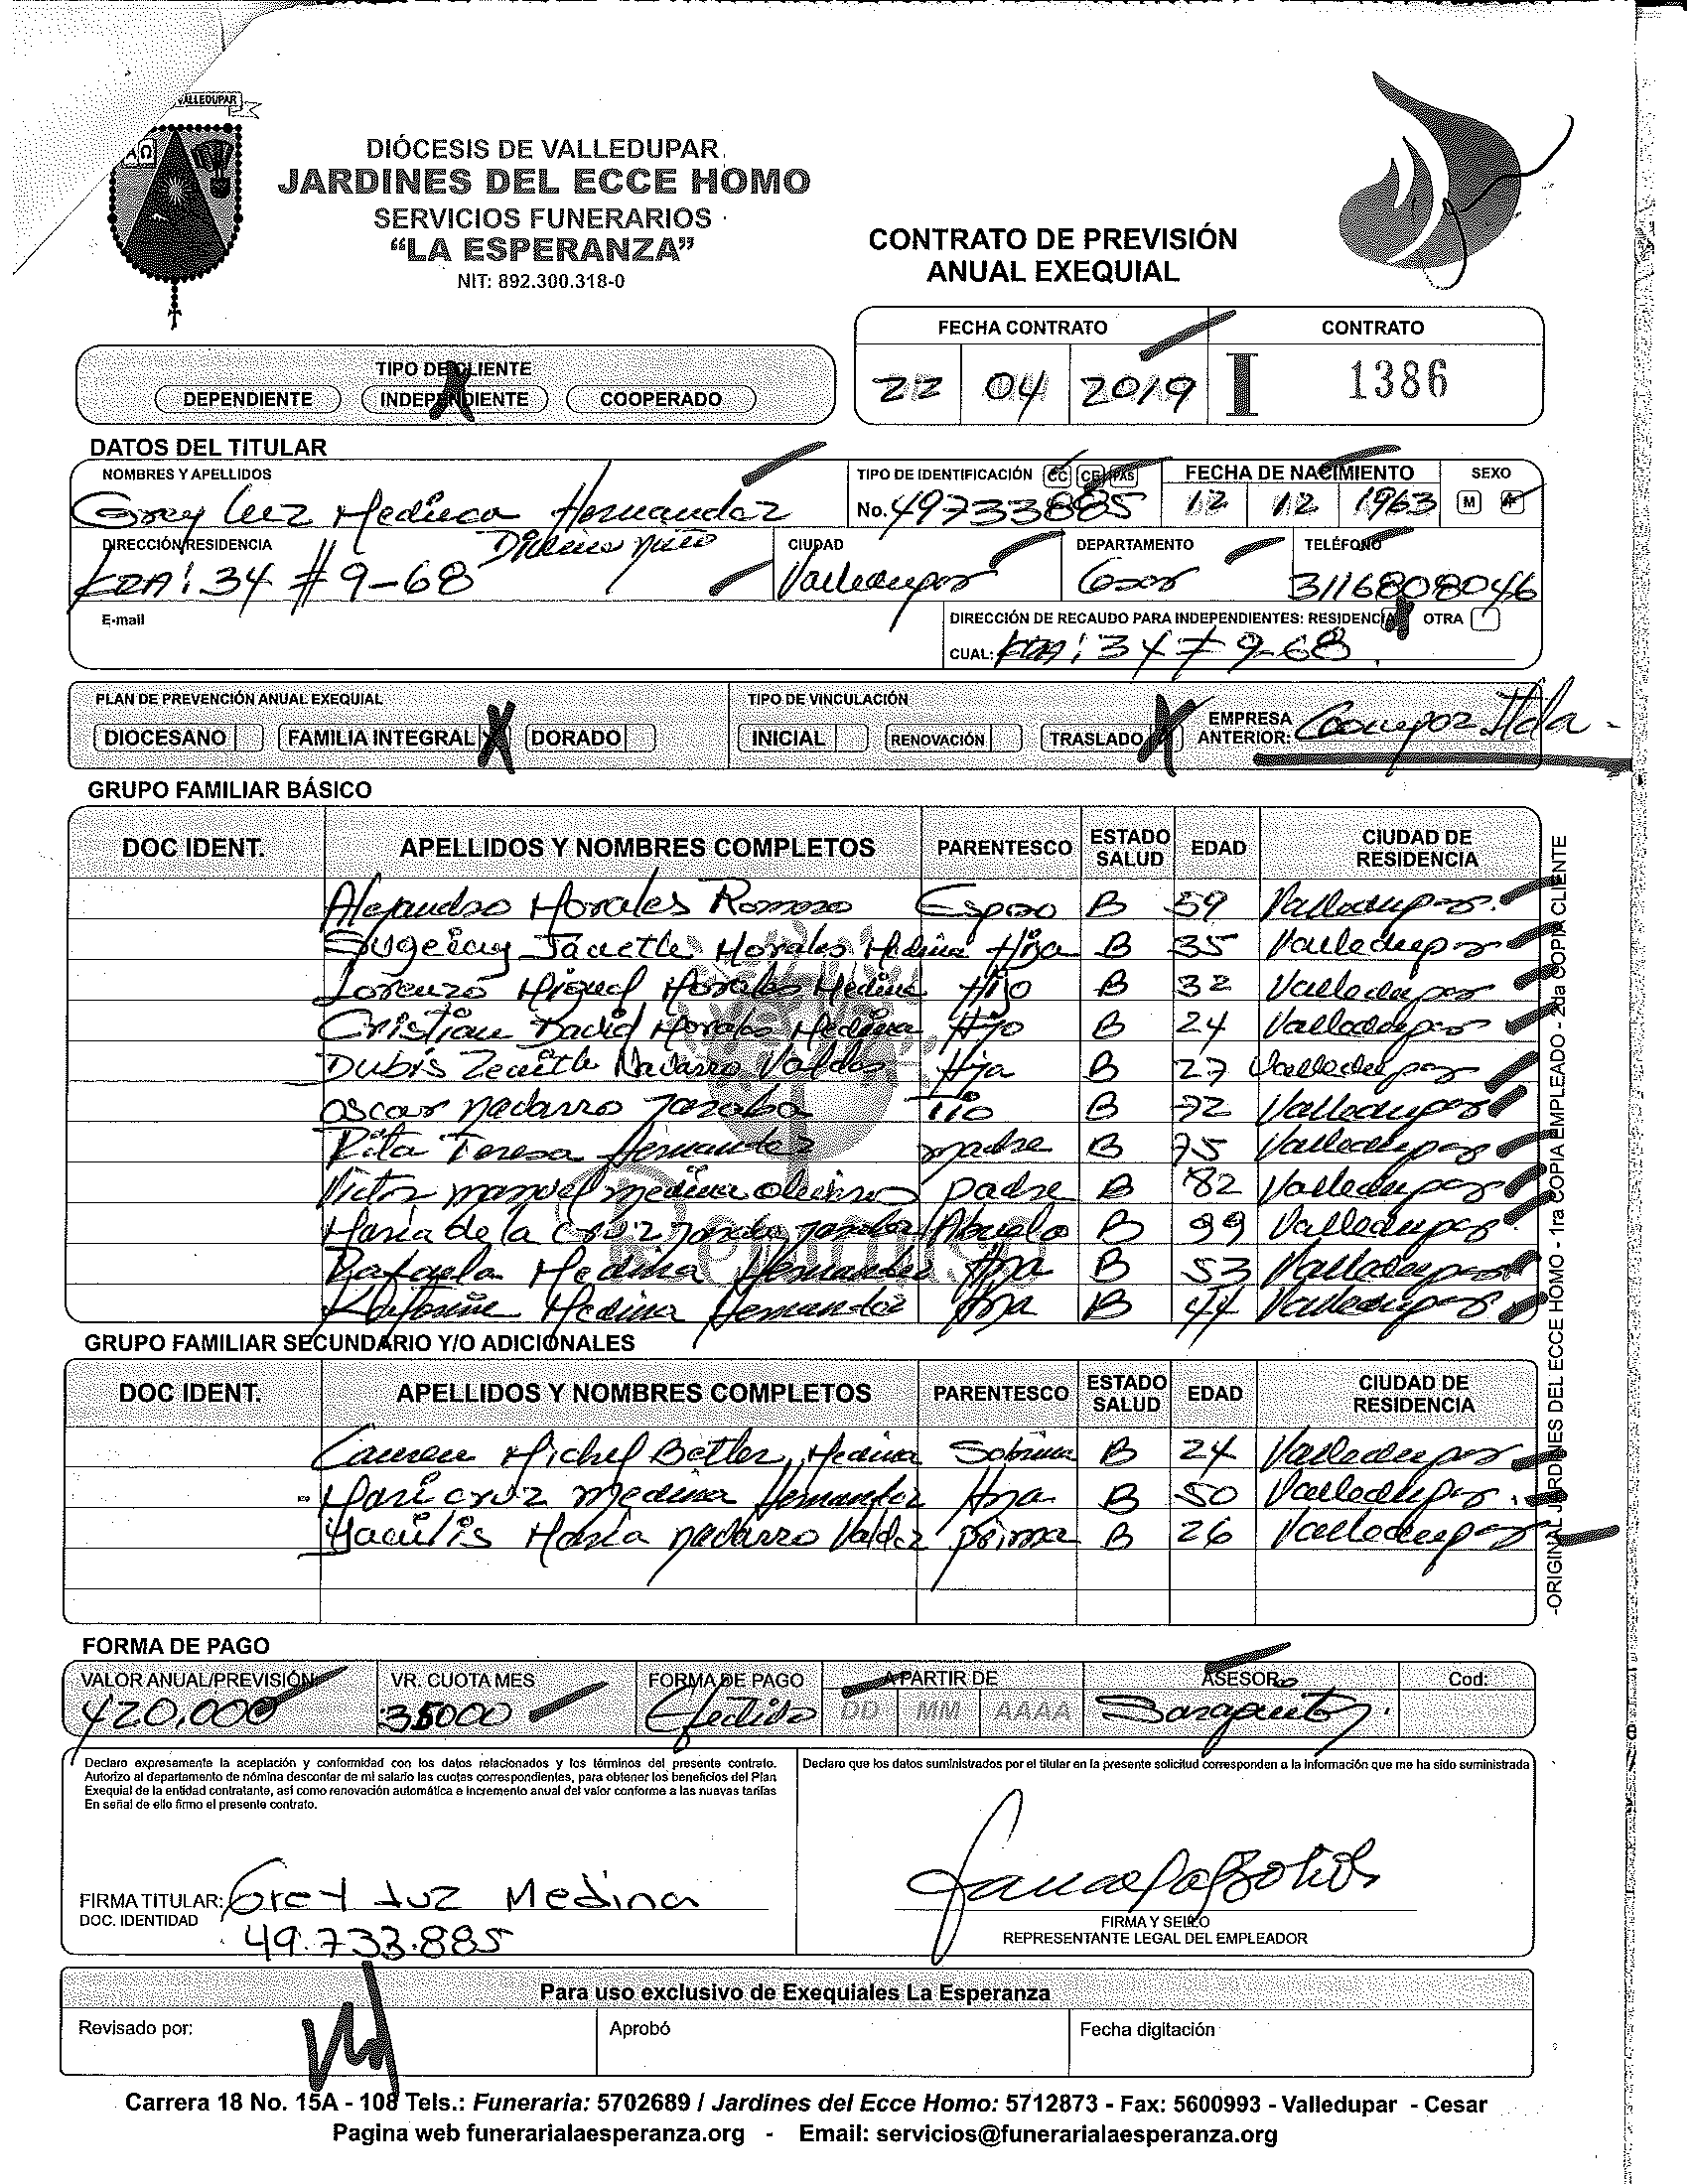 VALLEDUPAR
A Ω
DIÓCESIS DE VALLEDUPAR
JARDINES DEL ECCE HOMO
SERVICIOS FUNERARIOS
“LA ESPERANZA”
NIT: 892.300.318-0
CONTRATO DE PREVISIÓN
ANUAL EXEQUIAL
FECHA CONTRATO CONTRATO
22 04 2019 I 1386
TIPO DE CLIENTE
DEPENDIENTE INDEPENDIENTE X COOPERADO
DATOS DEL TITULAR
NOMBRES Y APELLIDOS TIPO DE IDENTIFICACIÓN CC CE PAS FECHA DE NACIMIENTO SEXO
Grey Luz Medina Hernandez No. 49733885 12 12 1963 M F
DIRECCIÓN/RESIDENCIA Divino niño CIUDAD DEPARTAMENTO TELÉFONO
KRA: 34 # 9-68 Valledupar Cesar 3116808046
E-mail DIRECCIÓN DE RECAUDO PARA INDEPENDIENTES: RESIDENCIA X OTRA
CUAL: KRA: 34 # 9-68
PLAN DE PREVENCIÓN ANUAL EXEQUIAL TIPO DE VINCULACIÓN
DIOCESANO FAMILIA INTEGRAL X DORADO INICIAL RENOVACIÓN TRASLADO X EMPRESA ANTERIOR: ltda
GRUPO FAMILIAR BÁSICO
DOC IDENT. APELLIDOS Y NOMBRES COMPLETOS PARENTESCO ESTADO SALUD EDAD CIUDAD DE RESIDENCIA
Alejandro Morales Romero Esposo B 59 Valledupar
Morales Medina Hija B 35 Valledupar
Lorenzo Miguel Morales Medina Hijo B 32 Valledupar
Cristian David Morales Medina Hijo B 24 Valledupar
Dubis Zenith Navarro Valdes Hija B 27 Valledupar
Oscar Navarro Tio B 72 Valledupar
Rita Teresa Hernandez madre B 75 Valledupar
Victor manuel medina padre B 82 Valledupar
Maria de la Cruz Abuela B 99 Valledupar
Rafaela Medina Hernandez Hna B 53 Valledupar
Medina Hernandez Hna B 44 Valledupar
GRUPO FAMILIAR SECUNDARIO Y/O ADICIONALES
DOC IDENT. APELLIDOS Y NOMBRES COMPLETOS PARENTESCO ESTADO SALUD EDAD CIUDAD DE RESIDENCIA
Michel Medina Sobrina B 24 Valledupar
Maricruz medina Hernandez Hna B 50 Valledupar
Maria navarro Valdez prima B 26 Valledupar
-ORIGINAL JARDINES DEL ECCE HOMO - 1ra COPIA EMPLEADO - 2da COPIA CLIENTE
FORMA DE PAGO
VALOR ANUAL/PREVISIÓN VR. CUOTA MES FORMA DE PAGO A PARTIR DE ASESOR Cod:
420,000 35000 Efectivo DD MM AAAA
Declaro expresamente la aceptación y conformidad con los datos relacionados y los términos del presente contrato.
Autorizo al departamento de nómina descontar de mi salario las cuotas correspondientes, para obtener los beneficios del Plan
Exequial de la entidad contratante, así como renovación automática e incremento anual del valor conforme a las nuevas tarifas
En señal de ello firmo el presente contrato.
Declaro que los datos suministrados por el titular en la presente solicitud corresponden a la información que me ha sido suministrada
FIRMA TITULAR: Grey Luz Medina
DOC. IDENTIDAD 49.733.885
FIRMA Y SELLO
REPRESENTANTE LEGAL DEL EMPLEADOR
Para uso exclusivo de Exequiales La Esperanza
Revisado por: Aprobó Fecha digitación
Carrera 18 No. 15A - 108 Tels.: Funeraria: 5702689 / Jardines del Ecce Homo: 5712873 - Fax: 5600993 - Valledupar - Cesar
Pagina web funerarialaesperanza.org - Email: servicios@funerarialaesperanza.org